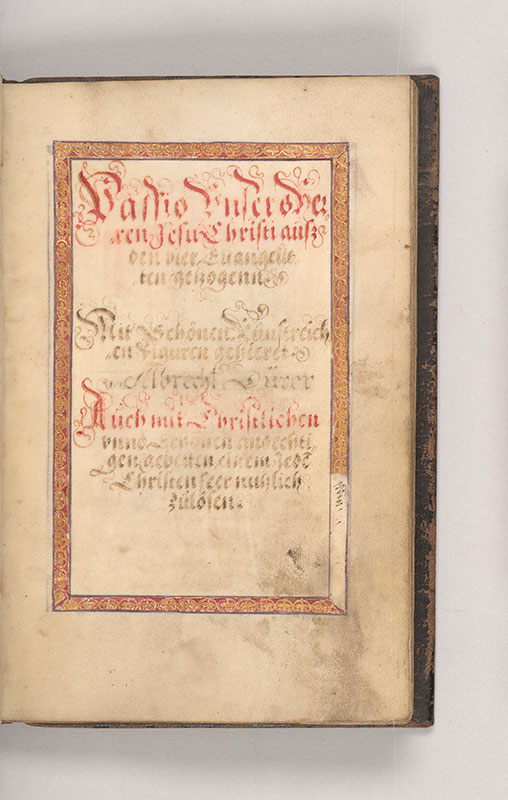 Passio Unsers Her,,
,,ren Jesu Christi ausz
den vier Euangelis
ten gezogenn
Mit Schönen Kunstreich
,,en Figuren gezieret
Albrecht Dürer
Auch mit Christlichen
vnnd
gen gebetten, einem Jedē
Christen seer nutzlich
zůlösen.